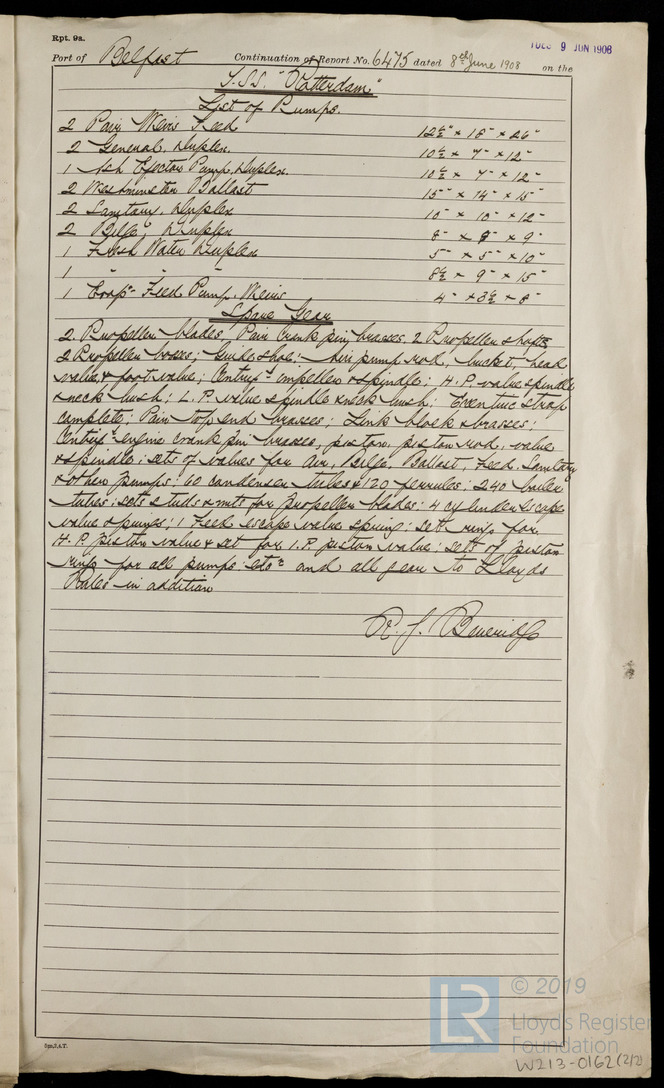 Rpt. 9a.
TUES 9 JUN 1908
Port of Belfast Continuation of Report No. 6475 dated 8th June 1908 on the
T.S.S. "Rotterdam"
List of Pumps.
2 Pairs Weirs Feed 12½" × 18" × 26"
2 General, Duplex. 10½ × 7" × 12"
1 Ash Ejector Pump, Duplex. 10½ × 7" × 12"
2 Westminster Ballast 15" × 14" × 15"
2 Sanitary, Duplex 10" × 10" × 12"
2 Bilge, Duplex 8" × 8" × 9"
1 Fresh Water Duplex 5" × 5" × 10"
1 " " " 8½ × 9" × 15"
1 Evapr Feed Pump, Weirs 4" × 3½ × 8"
Spare Gear
2 Propeller blades, Pair Crank pin, brasses, 2 Propeller shafts
2 Propeller bosses; Guide shoe; Air pump rod, bucket, head
valve & foot valve; Centrifl impeller & spindle; H.P. valve spindle
& neck bush; L.P. valve spindle & neck bush; Eccentric strap
complete; Pair top end brasses; Link block & brasses;
Centrifl engine crank pin brasses, piston, piston rod, valve
& spindle; sets of valves for Air, Bilge, Ballast, Feed, Sanitary
& other pumps; 60 condenser tubes & 120 ferrules; 240 boiler
tubes; sets studs & nuts for propeller blades; 4 cylinder escape
valve springs; 1 Feed escape valve spring; sett rings for
H.P. piston valve & set for I.P. piston valve; setts of piston
rings for all pumps etc and all gear to Lloyds
Rules in addition
R. J. Beveridge
© 2019
LR
Lloyd's Register
Foundation
W213-0162 (2/2)